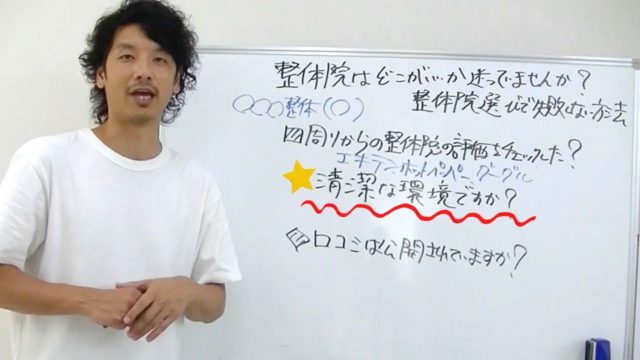 整体院はどこがいいか迷っていませんか？
整体院選びで失敗しない方法
〇〇〇整体(〇)
周りからの整体院の評価をチェックした？
エキテン ホットペッパー グーグル
清潔な環境ですか？
口コミは公開されていますか？